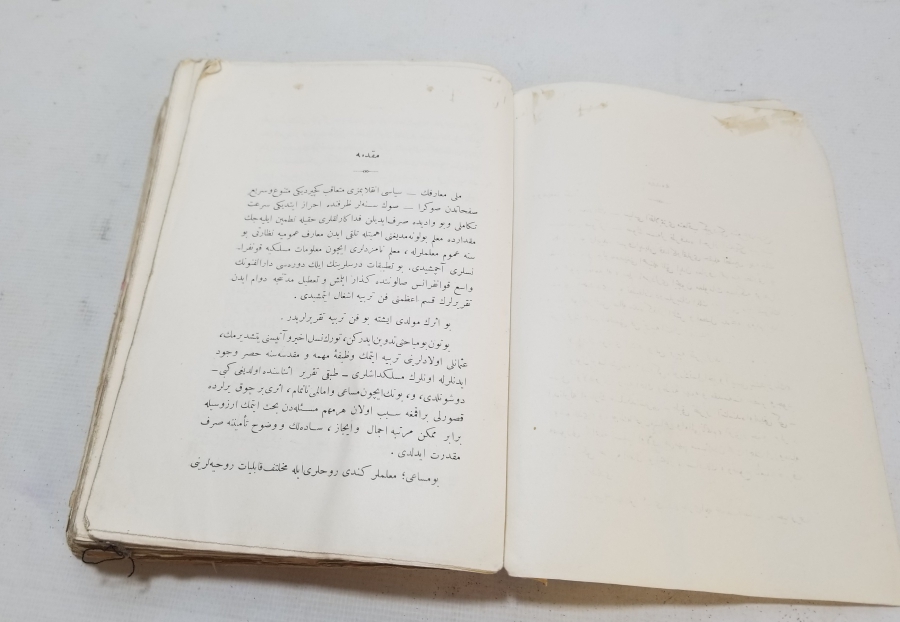 مقدمه
ملی معارفك — سیاسی انقلابمزی متعاقب كچیردیكی متنوع وسریع
صفحاتدن صوكرا — صوك سنه‌لر ظرفنده احراز ایتدیكی سرعت
تكاملی وبو وادیده صرف ایدیلن فداكارلقلری حقیله تطمین ایده‌جك
مقدارده معلم بولونه‌مدیغنی اهمیتله تلقی ایدن معارف عمومیه نظارتی بو
سنه عموم معلملرله ، معلم نامزدلری ایچون معلومات مسلكیه قونفرا-
نسلری آچمشیدی. بو تطبیقات درسلرینك ایلك دوره‌سی دارالفنونك
واسع قونفرانس صالوننده كذار ایتمش و تعطیل مدتنجه دوام ایدن
تقریرلرك قسم اعظمنی فن تربیه اشغال ایتمشیدی .
بو اثرك مولدی ایشته بو فن تربیه تقریرلریدر .
بوتون بو مباحثی تدوین ایدركن ، تورك نسل اخیر و آتیسنی یتشدیرمك ،
عثمانلی اولادلرینی تربیه ایتمك وظیفهٔ مهمه و مقدسه‌سنه حصر وجود
ایدنلرله اونلرك مسلكداشلری — طبقی تقریر اثناسنده اولدیغی كبی —
دوشونلدی ، و ، بونك ایچون مساعی وامالی ناتمام ، اثری بر چوق یرلرده
قصورلی براقمغه سبب اولان هر مهم مسئله‌دن بحث ایتمك آرزوسیله
برابر ممكن مرتبه اجمال وایجاز ، ساده‌لك و وضوح تأمیننه صرف
مقدرت ایدلدی .
بو مساعی ؛ معلملر كندی روحلری ایله مختلف قابلیات روحیه‌لرینی